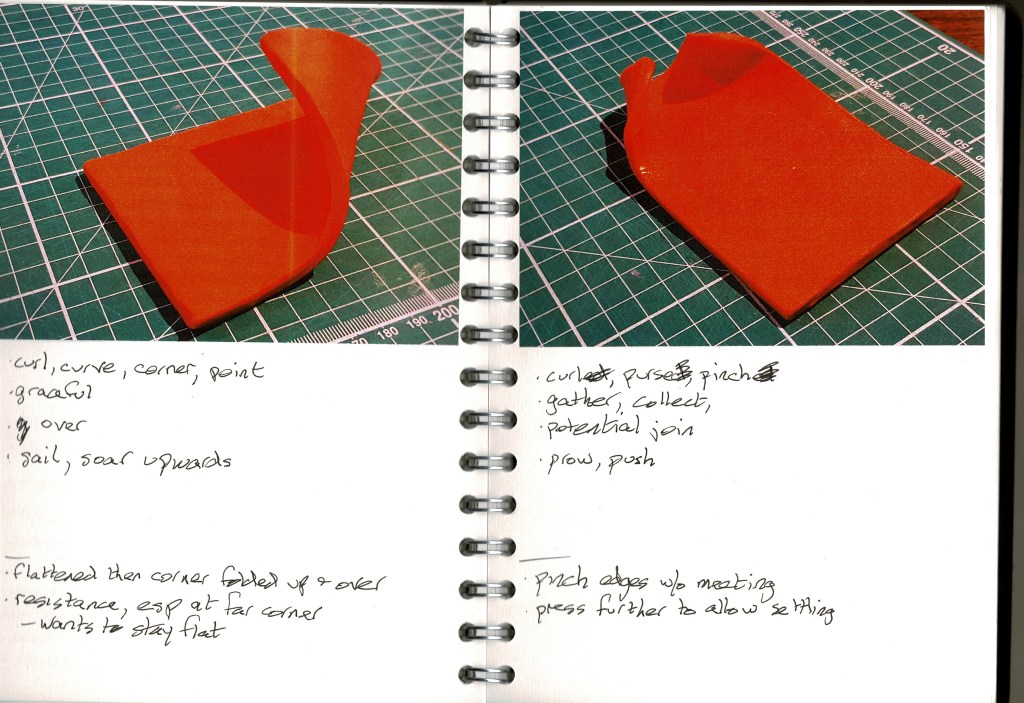 · curl, curve, corner, point
· graceful
· over
· sail, soar upwards
· flattened then corner folded up + over
· resistance, esp at far corner
– wants to stay flat
· curl, purse, pinch
· gather, collect,
· potential join
· prow, push
· pinch edges w/o meeting
· press further to allow settling
180 190 200
20